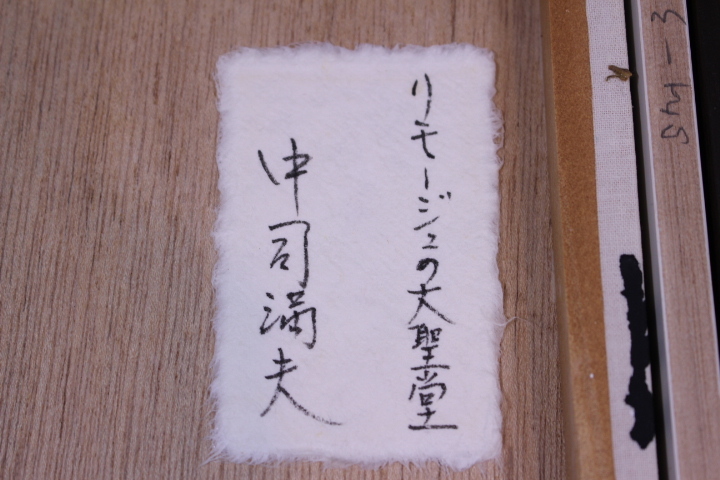 リモージュの大聖堂
中司満夫